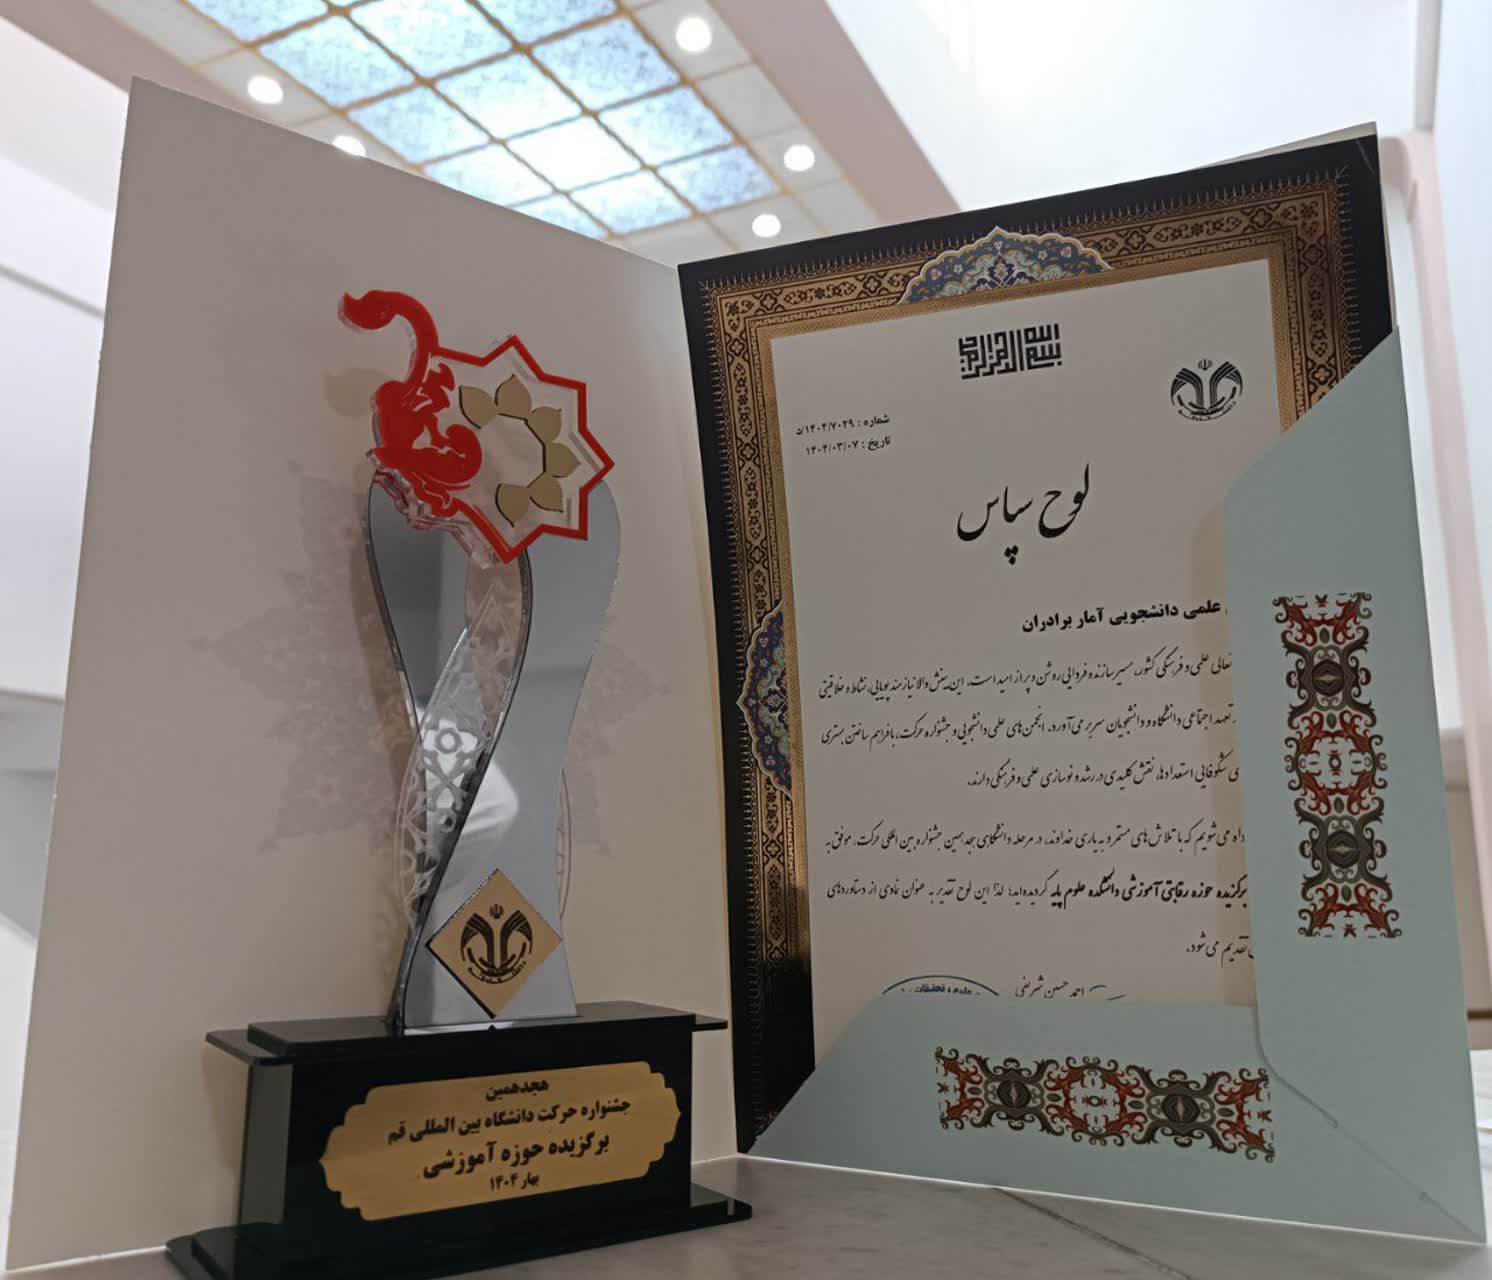 هجدهمین
جشنواره حرکت دانشگاه بین المللی قم
برگزیده حوزه آموزشی
بهار ۱۴۰۴
بسم الله الرحمن الرحیم
شماره : ۱۴۰۴/۷۰۲۹/د
تاریخ : ۱۴۰۴/۰۳/۰۷
لوح سپاس
علمی دانشجویی آمار برادران
تعالی علمی و فرهنگی کشور، مسیر سازنده فردایی روشن و پر از امید است. این بینش والا نیازمند پویایی، نشاط و خلاقیتی
تعهد اجتماعی دانشگاه و دانشجویان سر بر می‌آورد. انجمن‌های علمی دانشجویی و جشنواره حرکت، با فراهم ساختن بستری
شکوفایی استعدادها، نقش کلیدی در رشد و نوسازی علمی و فرهنگی دارند.
می‌شویم که با تلاش‌های مستمر و به یاری خداوند، در مرحله دانشگاهی هجدهمین جشنواره بین المللی حرکت، موفق به
برگزیده حوزه رقابتی آموزشی دانشکده علوم پایه گردیده‌اید؛ لذا این لوح تقدیر به عنوان نمادی از دستاوردهای
تقدیم می‌شود.
احمد حسین شریفی
علوم، تحقیقات